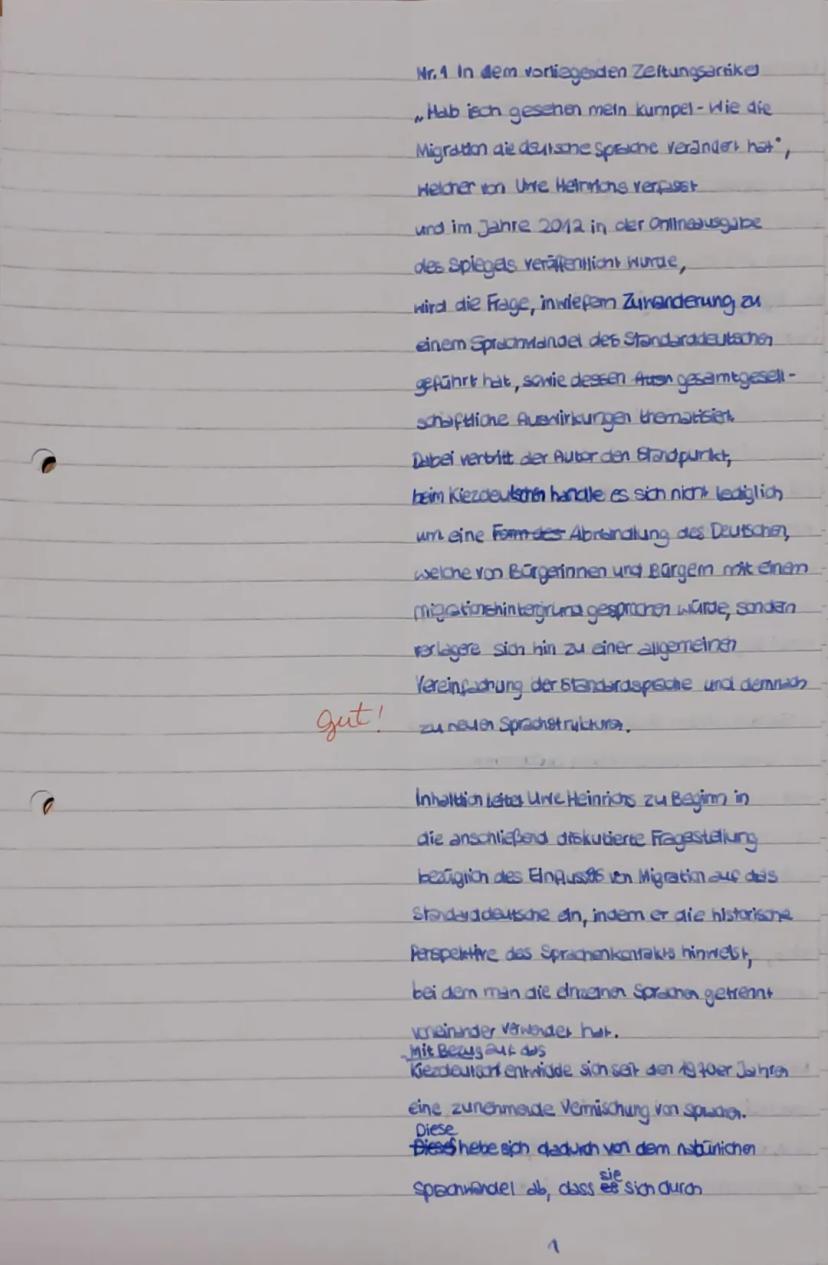 Nr. 1 In dem vorliegenden Zeitungsartikel
„Hab isch gesehen mein Kumpel - Wie die
Migration die deutsche Sprache verändert hat",
welcher von Uwe Heinrichs verfasst
und im Jahre 2012 in der Onlineausgabe
des Spiegels veröffentlicht wurde,
wird die Frage, inwiefern Zuwanderung zu
einem Sprachwandel des Standarddeutschen
geführt hat, sowie dessen gesamtgesell-
schaftliche Auswirkungen thematisiert.
Dabei vertritt der Autor den Standpunkt,
beim Kiezdeutschen handle es sich nicht lediglich
um eine Form des Abwandlung des Deutschen,
welche von Bürgerinnen und Bürgern mit einem
Migrationshintergrund gesprochen würde, sondern
verlagere sich hin zu einer allgemeinen
Vereinfachung der Standardsprache und demnach
gut! zu neuen Sprachstrukturen.
Inhaltlich leitet Uwe Heinrichs zu Beginn in
die anschließend diskutierte Fragestellung
bezüglich des Einflusses von Migration auf das
Standarddeutsche ein, indem er die historische
Perspektive des Sprachenkontakts hinweist,
bei dem man die einzelnen Sprachen getrennt
voneinander verwendet hat.
Mit Bezug auf das
Kiezdeutsch entwickle sich seit den 1970er Jahren
eine zunehmende Vermischung von Sprachen.
Diese
Dieses hebe sich dadurch von dem natürlichen
sie
Sprachwandel ab, dass es sich durch
1